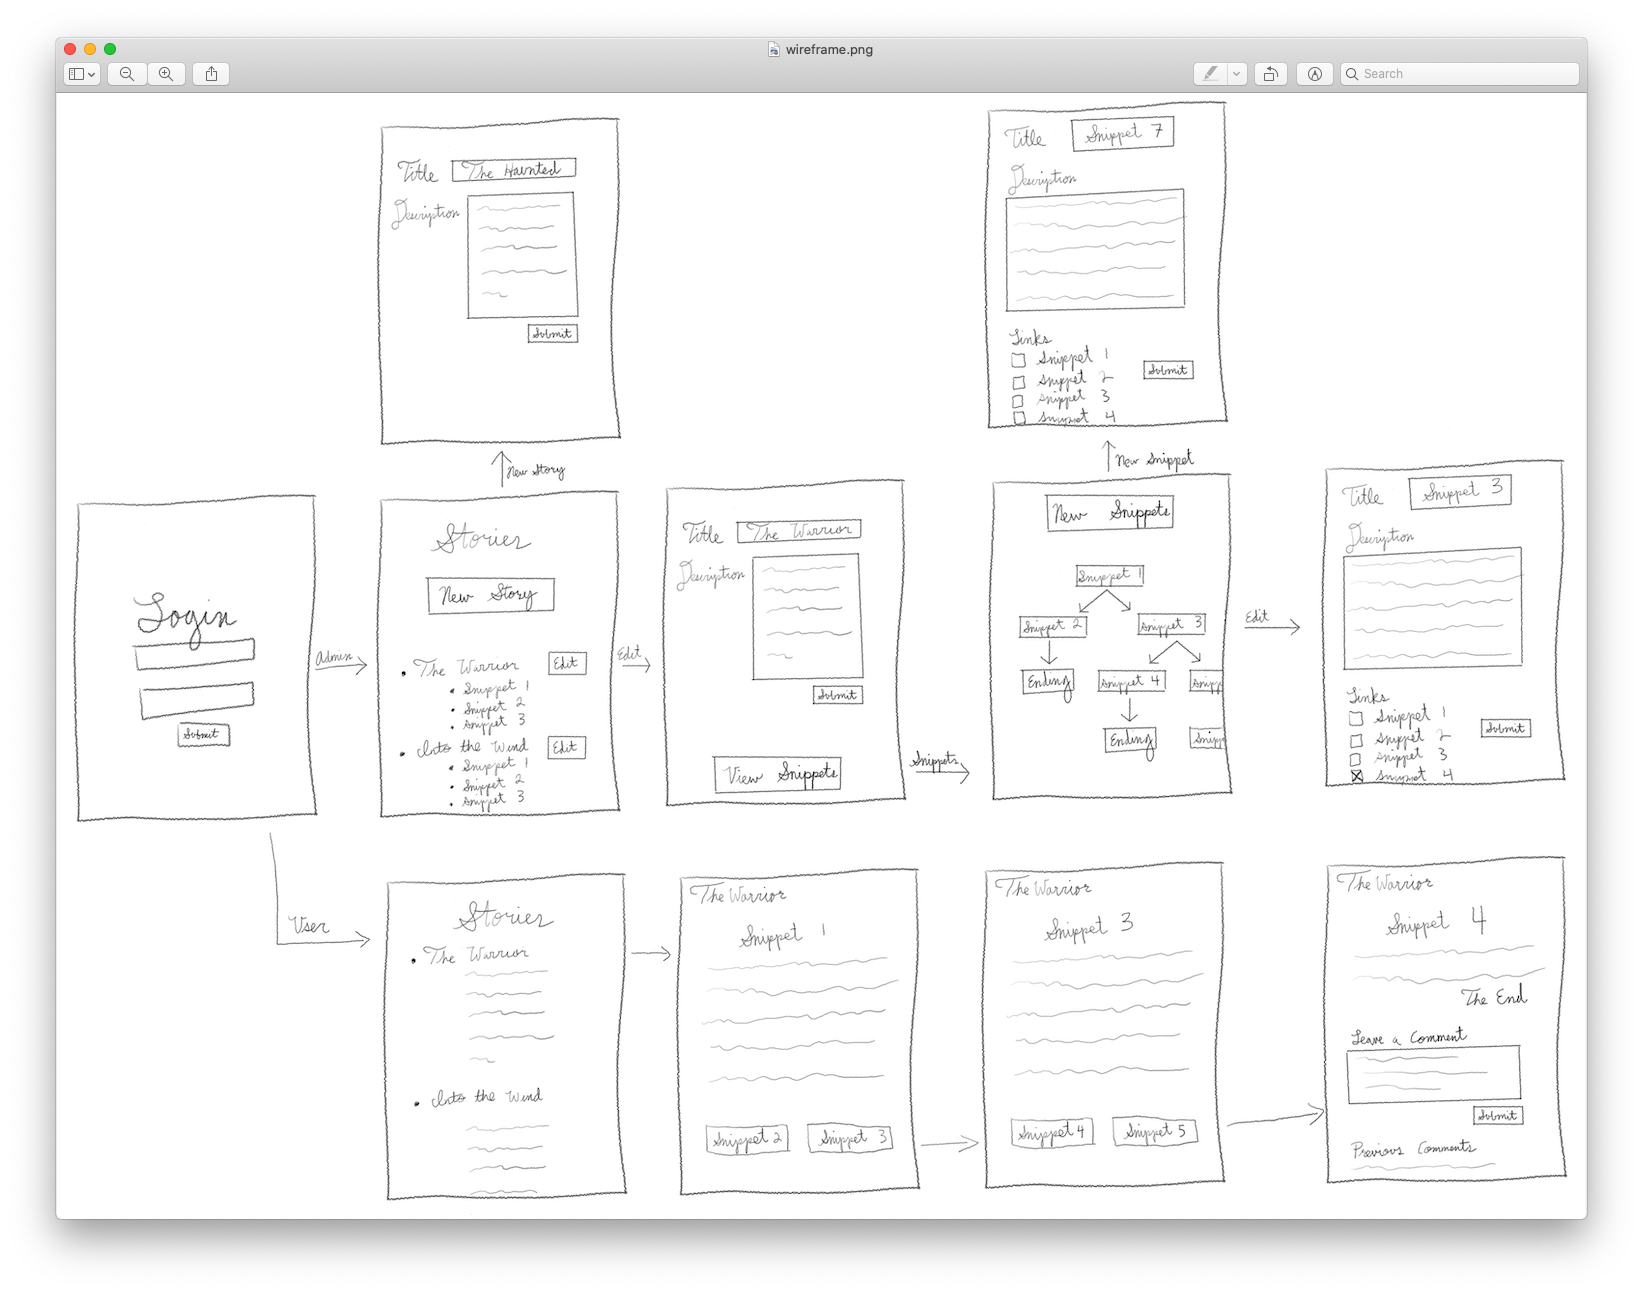 wireframe.png
Search
Title The Haunted
Description
Submit
New Story
Title Snippet 7
Description
Links
Snippet 1
Snippet 2
Snippet 3
Snippet 4
Submit
New Snippet
Login
Submit
Admin
User
Stories
New Story
The Warrior Edit
Snippet 1
Snippet 2
Snippet 3
Into the Wind Edit
Snippet 1
Snippet 2
Snippet 3
Edit
Title The Warrior
Description
Submit
View Snippets
Snippets
New Snippets
Snippet 1
Snippet 2 Snippet 3
Ending Snippet 4 Snipp
Ending Snipp
Edit
Title Snippet 3
Description
Links
Snippet 1
Snippet 2
Snippet 3
Snippet 4
Submit
Stories
The Warrior
Into the Wind
The Warrior
Snippet 1
Snippet 2 Snippet 3
The Warrior
Snippet 3
Snippet 4 Snippet 5
The Warrior
Snippet 4
The End
Leave a Comment
Submit
Previous Comments